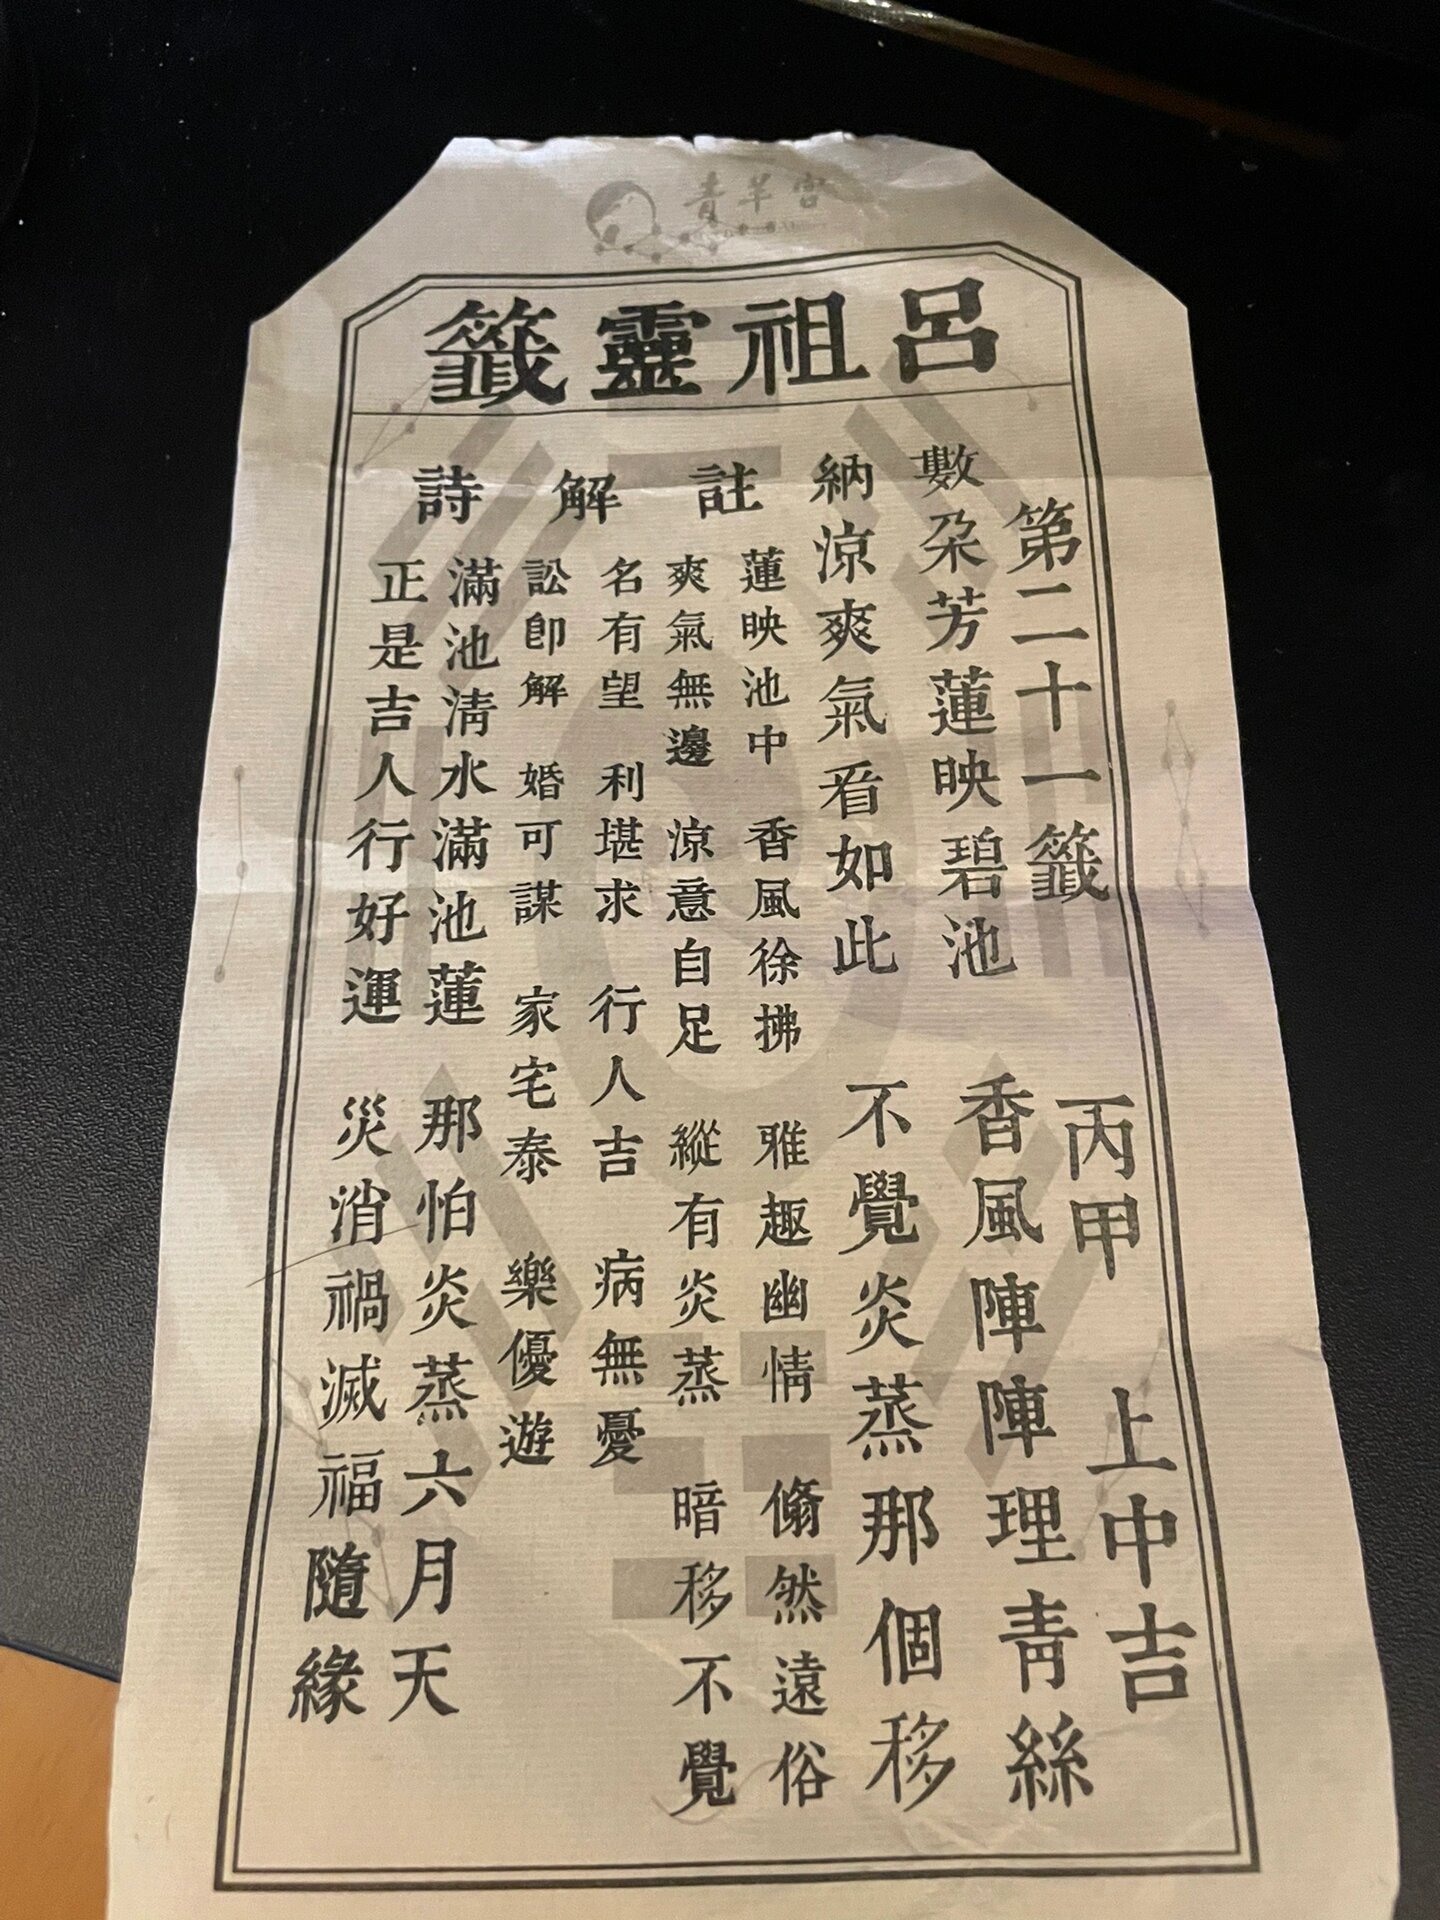 青羊宮
呂祖靈籤
第二十一籤 丙甲 上中吉
數朶芳蓮映碧池 香風陣陣理青絲
納涼爽氣看如此 不覺炎蒸那個移
註
蓮映池中 香風徐拂 雅趣幽情 翛然遠俗
爽氣無邊 涼意自足 縱有炎蒸 暗移不覺
解
名有望 利堪求 行人吉 病無憂
訟卽解 婚可謀 家宅泰 樂優遊
詩
滿池淸水滿池蓮 那怕炎蒸六月天
正是吉人行好運 災消禍滅福隨緣